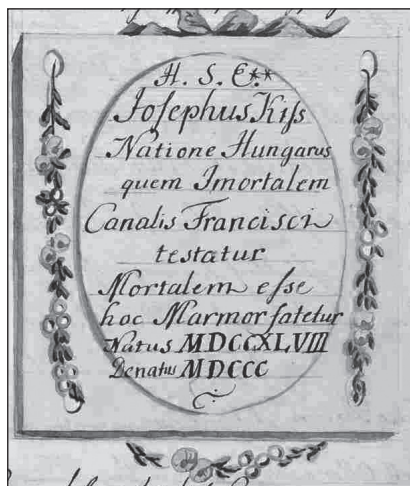 H. S. E.**
Josephus Kiſs
Natione Hungarus
quem Imortalem
Canalis Francisci
testatur
Mortalem eſse
hoc Marmor fatetur
Natus MDCCXLVIII
Denatus MDCCC